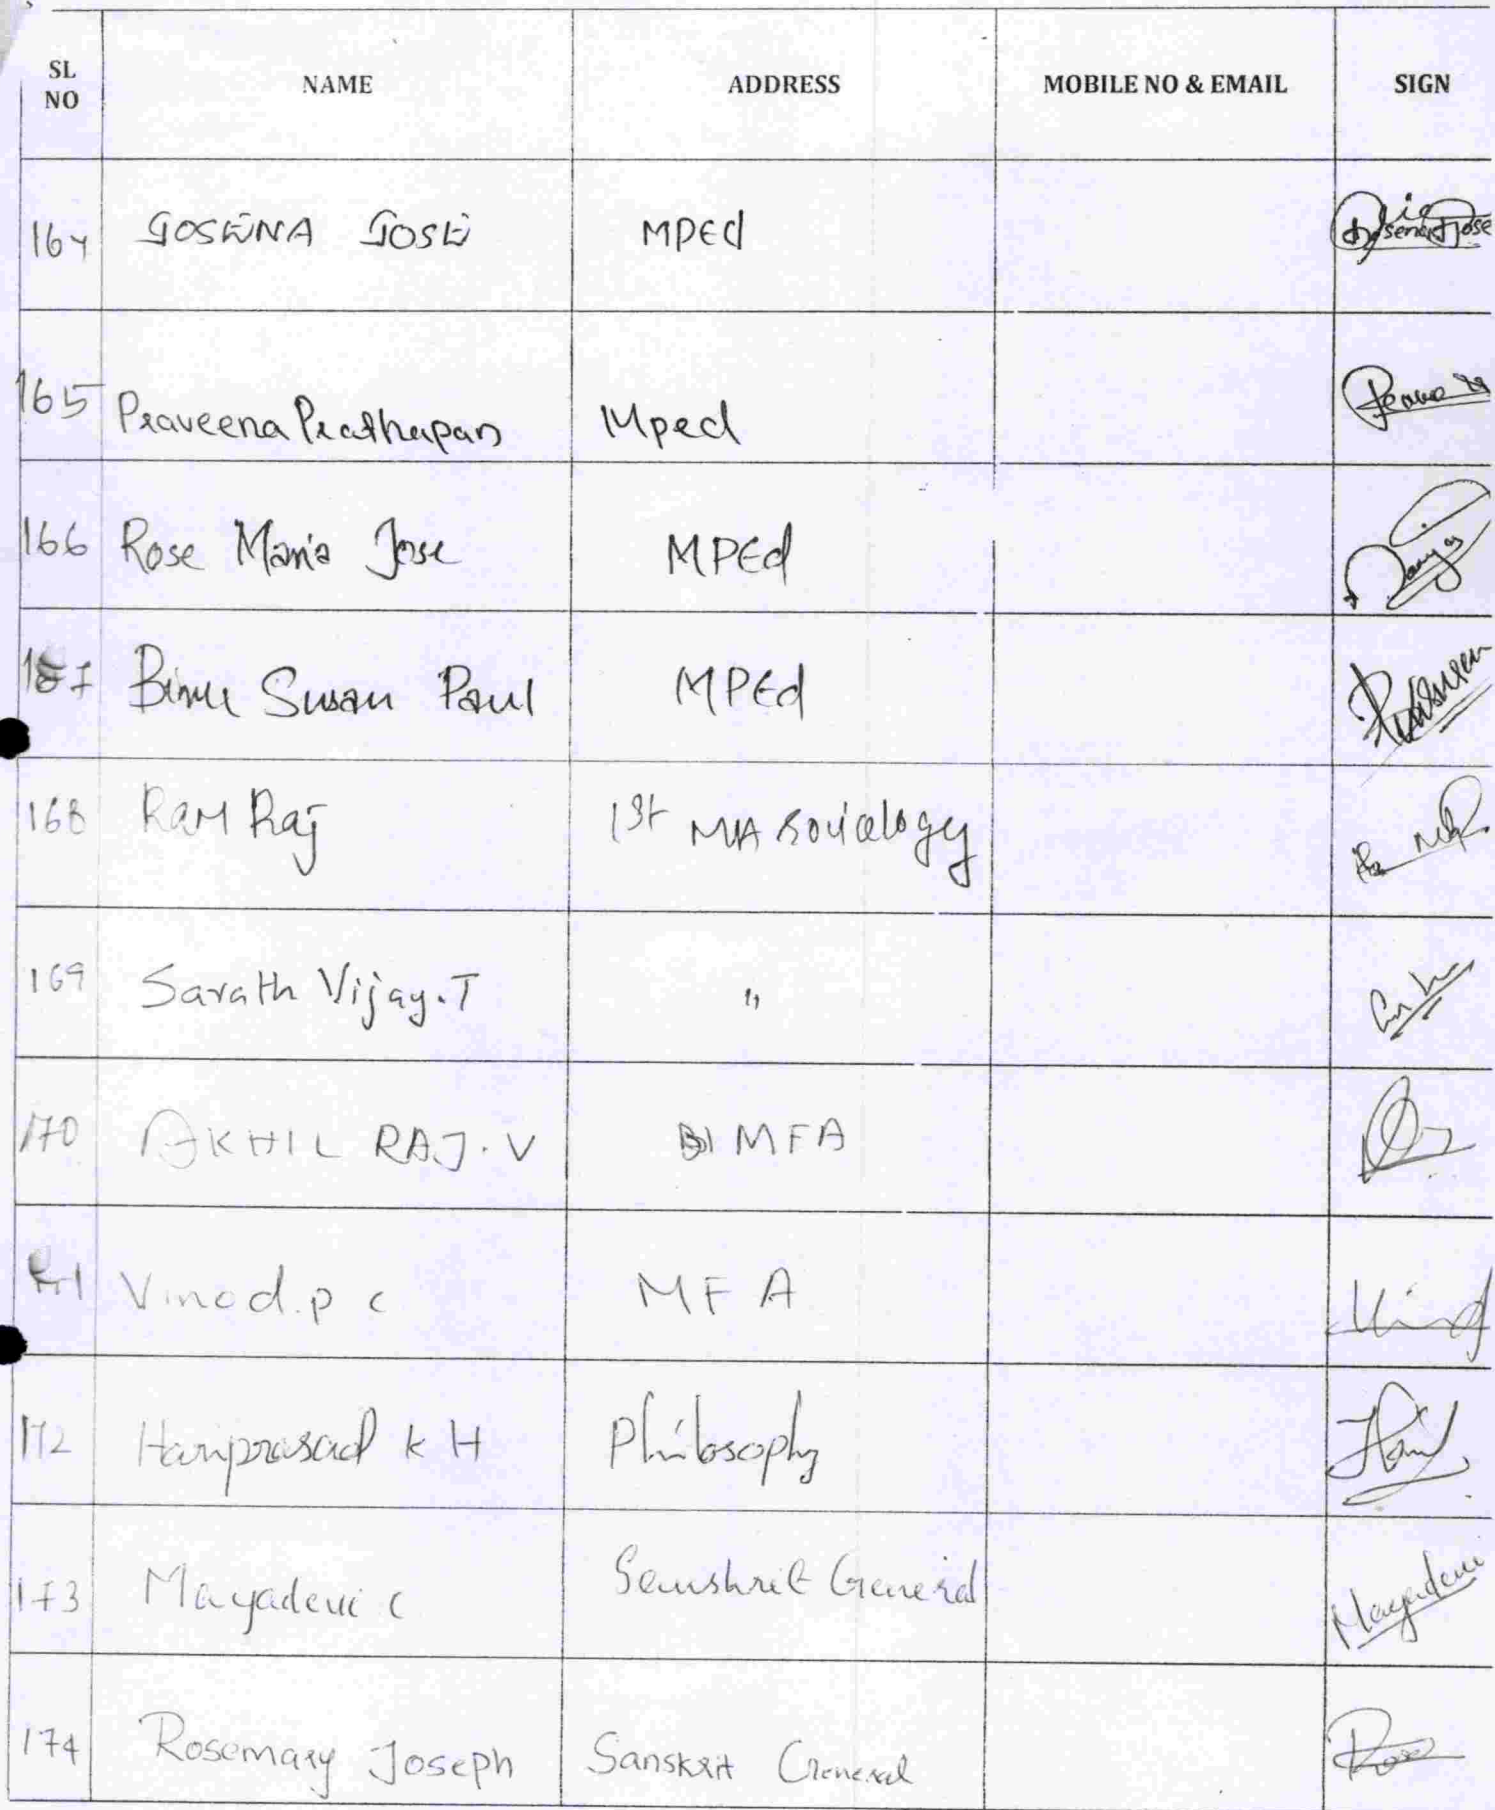 SL NO NAME ADDRESS MOBILE NO & EMAIL SIGN
164 JOSENA JOSE MPEd Josena Jose
165 Praveena Prathapan Mped
166 Rose Maria Jose MPEd
167 Binu Susan Paul MPEd
168 Ram Raj 1st MA Sociology
169 Sarath Vijay.T "
170 AKHIL RAJ. V MFA
171 Vinod.p c MFA
172 Hariprasad K H Philosophy
173 Mayadevi C Samskrit General Mayadevi
174 Rosemary Joseph Sanskrit General Rose